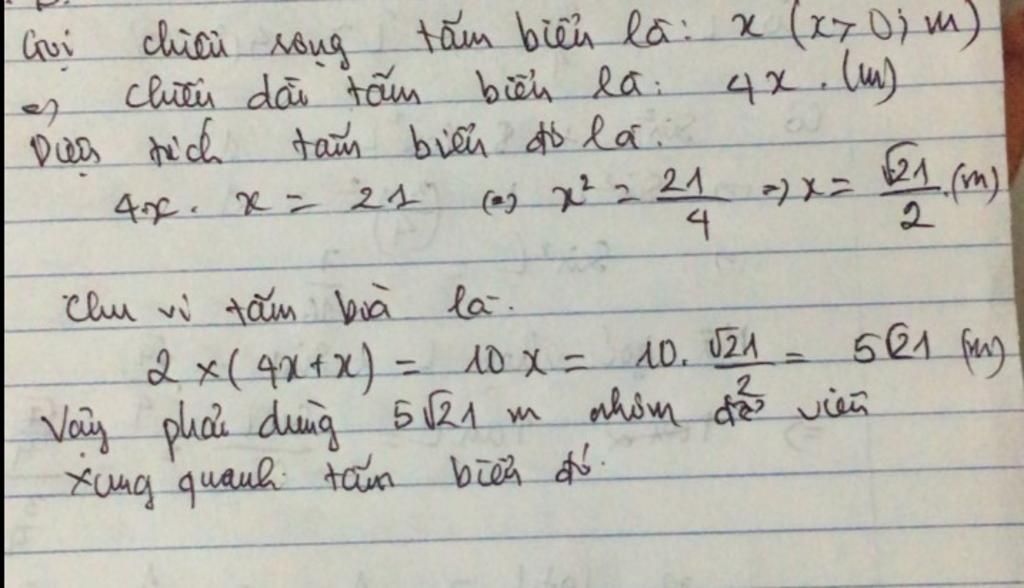 Gọi chiều rộng tấm biển là: x (x > 0; m)
=> chiều dài tấm biển là: 4x. (m)
Diện tích tấm biển đó là:
4x. x = 21 (=) x² = 21/4 => x = √21/2 (m)
Chu vi tấm bìa là:
2 × (4x + x) = 10x = 10. √21/2 = 5√21 (m)
Vậy phải dùng 5√21 m nhôm để viền
xung quanh tấm biển đó.